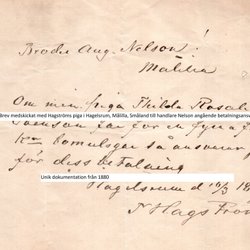 Broder Aug. Nelson!
Målilla
Om min piga Thilda Rosalie
Brev medskickat med Hagströms piga i Hagelsrum, Målilla, Småland till handlare Nelson angående betalningsansvar
Svenson tar för en
Kron bomulsgar så ansvarar
för dess betalning
Unik dokumentation från 1880
Hagelsrum d 10/3 18
Hagström